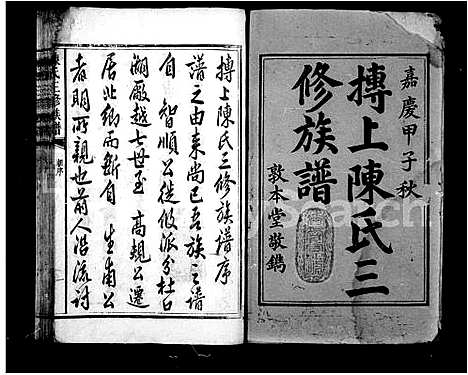 嘉慶甲子秋
摶上陳氏三
修族譜
敦本堂敬鐫
摶上陳氏三修族譜序
譜之由来尚已吾族之譜
自 智順公徙攸派分杜口
嗣厥越七世至 高規公遷
居此鄉而斷自 生甫公
者明所親也前人沿流討
陳氏三修族譜